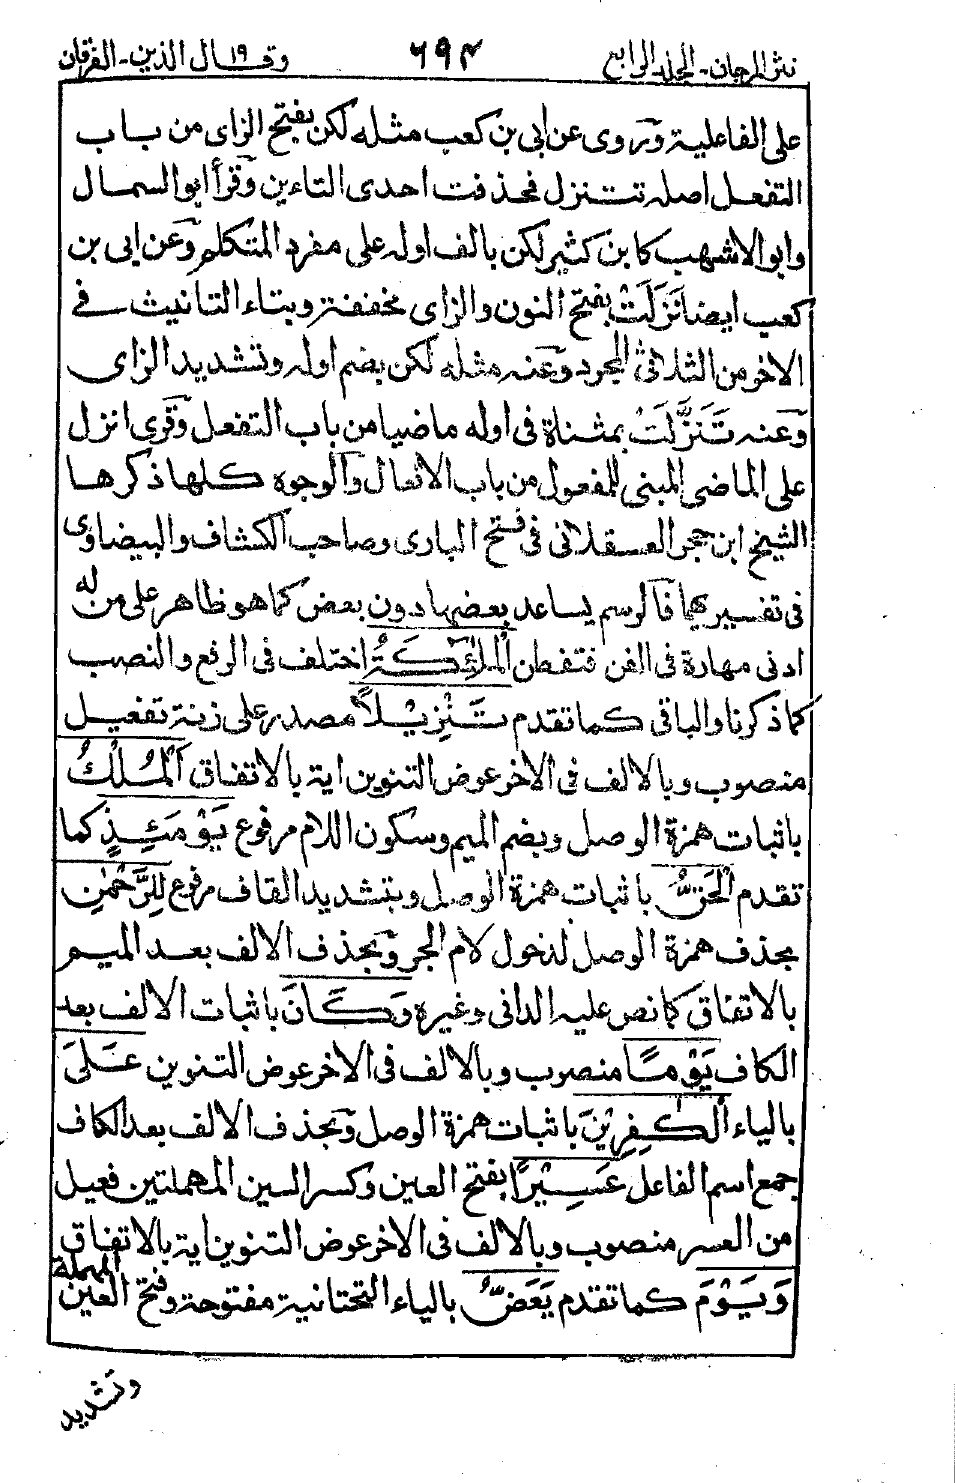 نثر المرجان - المجلد الرابع ٦٩٤ وقال ١٩ الذين - الفرقان
على الفاعلية وروى عن ابى بن كعب مثله لكن بفتح الزاى من باب
التفعل اصله تتنزل فحذفت احدى التاءين وقرأ ابو السمال
وابو الاشهب كابن كثير لكن بالف اوله على مفرد المتكلم وعن ابى بن
كعب ايضا نَزَلَتْ بفتح النون والزاى مخففة وبتاء التانيث فى
الاخر من الثلاثى المجرد وعنه مثله لكن بضم اوله وتشديد الزاى
وعنه تَنَزَّلَتْ بمثناة فى اوله ماضيا من باب التفعل وقرى انزل
على الماضى المبنى للمفعول من باب الافعال والوجوه كلها ذكرها
الشيخ ابن حجر العسقلانى فى فتح البارى وصاحب الكشاف والبيضاوى
فى تفسيريهما فالرسم يساعد بعضها دون بعض كما هو ظاهر على من له
ادنى مهارة فى الفن فتفطن اَلْمَلٰئِكَةُ اختلف فى الرفع والنصب
كما ذكرنا والباقى كما تقدم تَنْزِيْلًا مصدر على زنة تفعيل
منصوب وبالالف فى الاخر عوض التنوين اية بالاتفاق اَلْمُلْكُ
باثبات همزة الوصل وبضم الميم وسكون اللام مرفوع يَوْمَئِذٍ كما
تقدم الْحَقُّ باثبات همزة الوصل وبتشديد القاف مرفوع لِلرَّحْمٰنِ
بحذف همزة الوصل لدخول لام الجر وبحذف الالف بعد الميم
بالاتفاق كما نص عليه الدانى وغيره وَكَانَ باثبات الالف بعد
الكاف يَوْمًا منصوب وبالالف فى الاخر عوض التنوين عَلَى
بالياء الْكٰفِرِيْنَ باثبات همزة الوصل وبحذف الالف بعد الكاف
جمع اسم الفاعل عَسِيْرًا بفتح العين وكسر السين المهملتين فعيل
من العسر منصوب وبالالف فى الاخر عوض التنوين اية بالاتفاق
وَيَوْمَ كما تقدم يَعَضُّ بالياء التحتانية مفتوحة وفتح العين المهملة
وتشديد